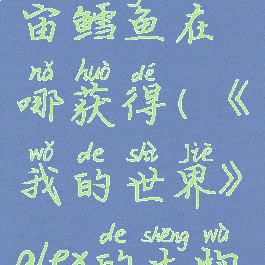 宙鳕鱼在
nǎ huò dé
哪获得(《
wǒ de shì jiè
我的世界》
de shēng wù
alex的生物